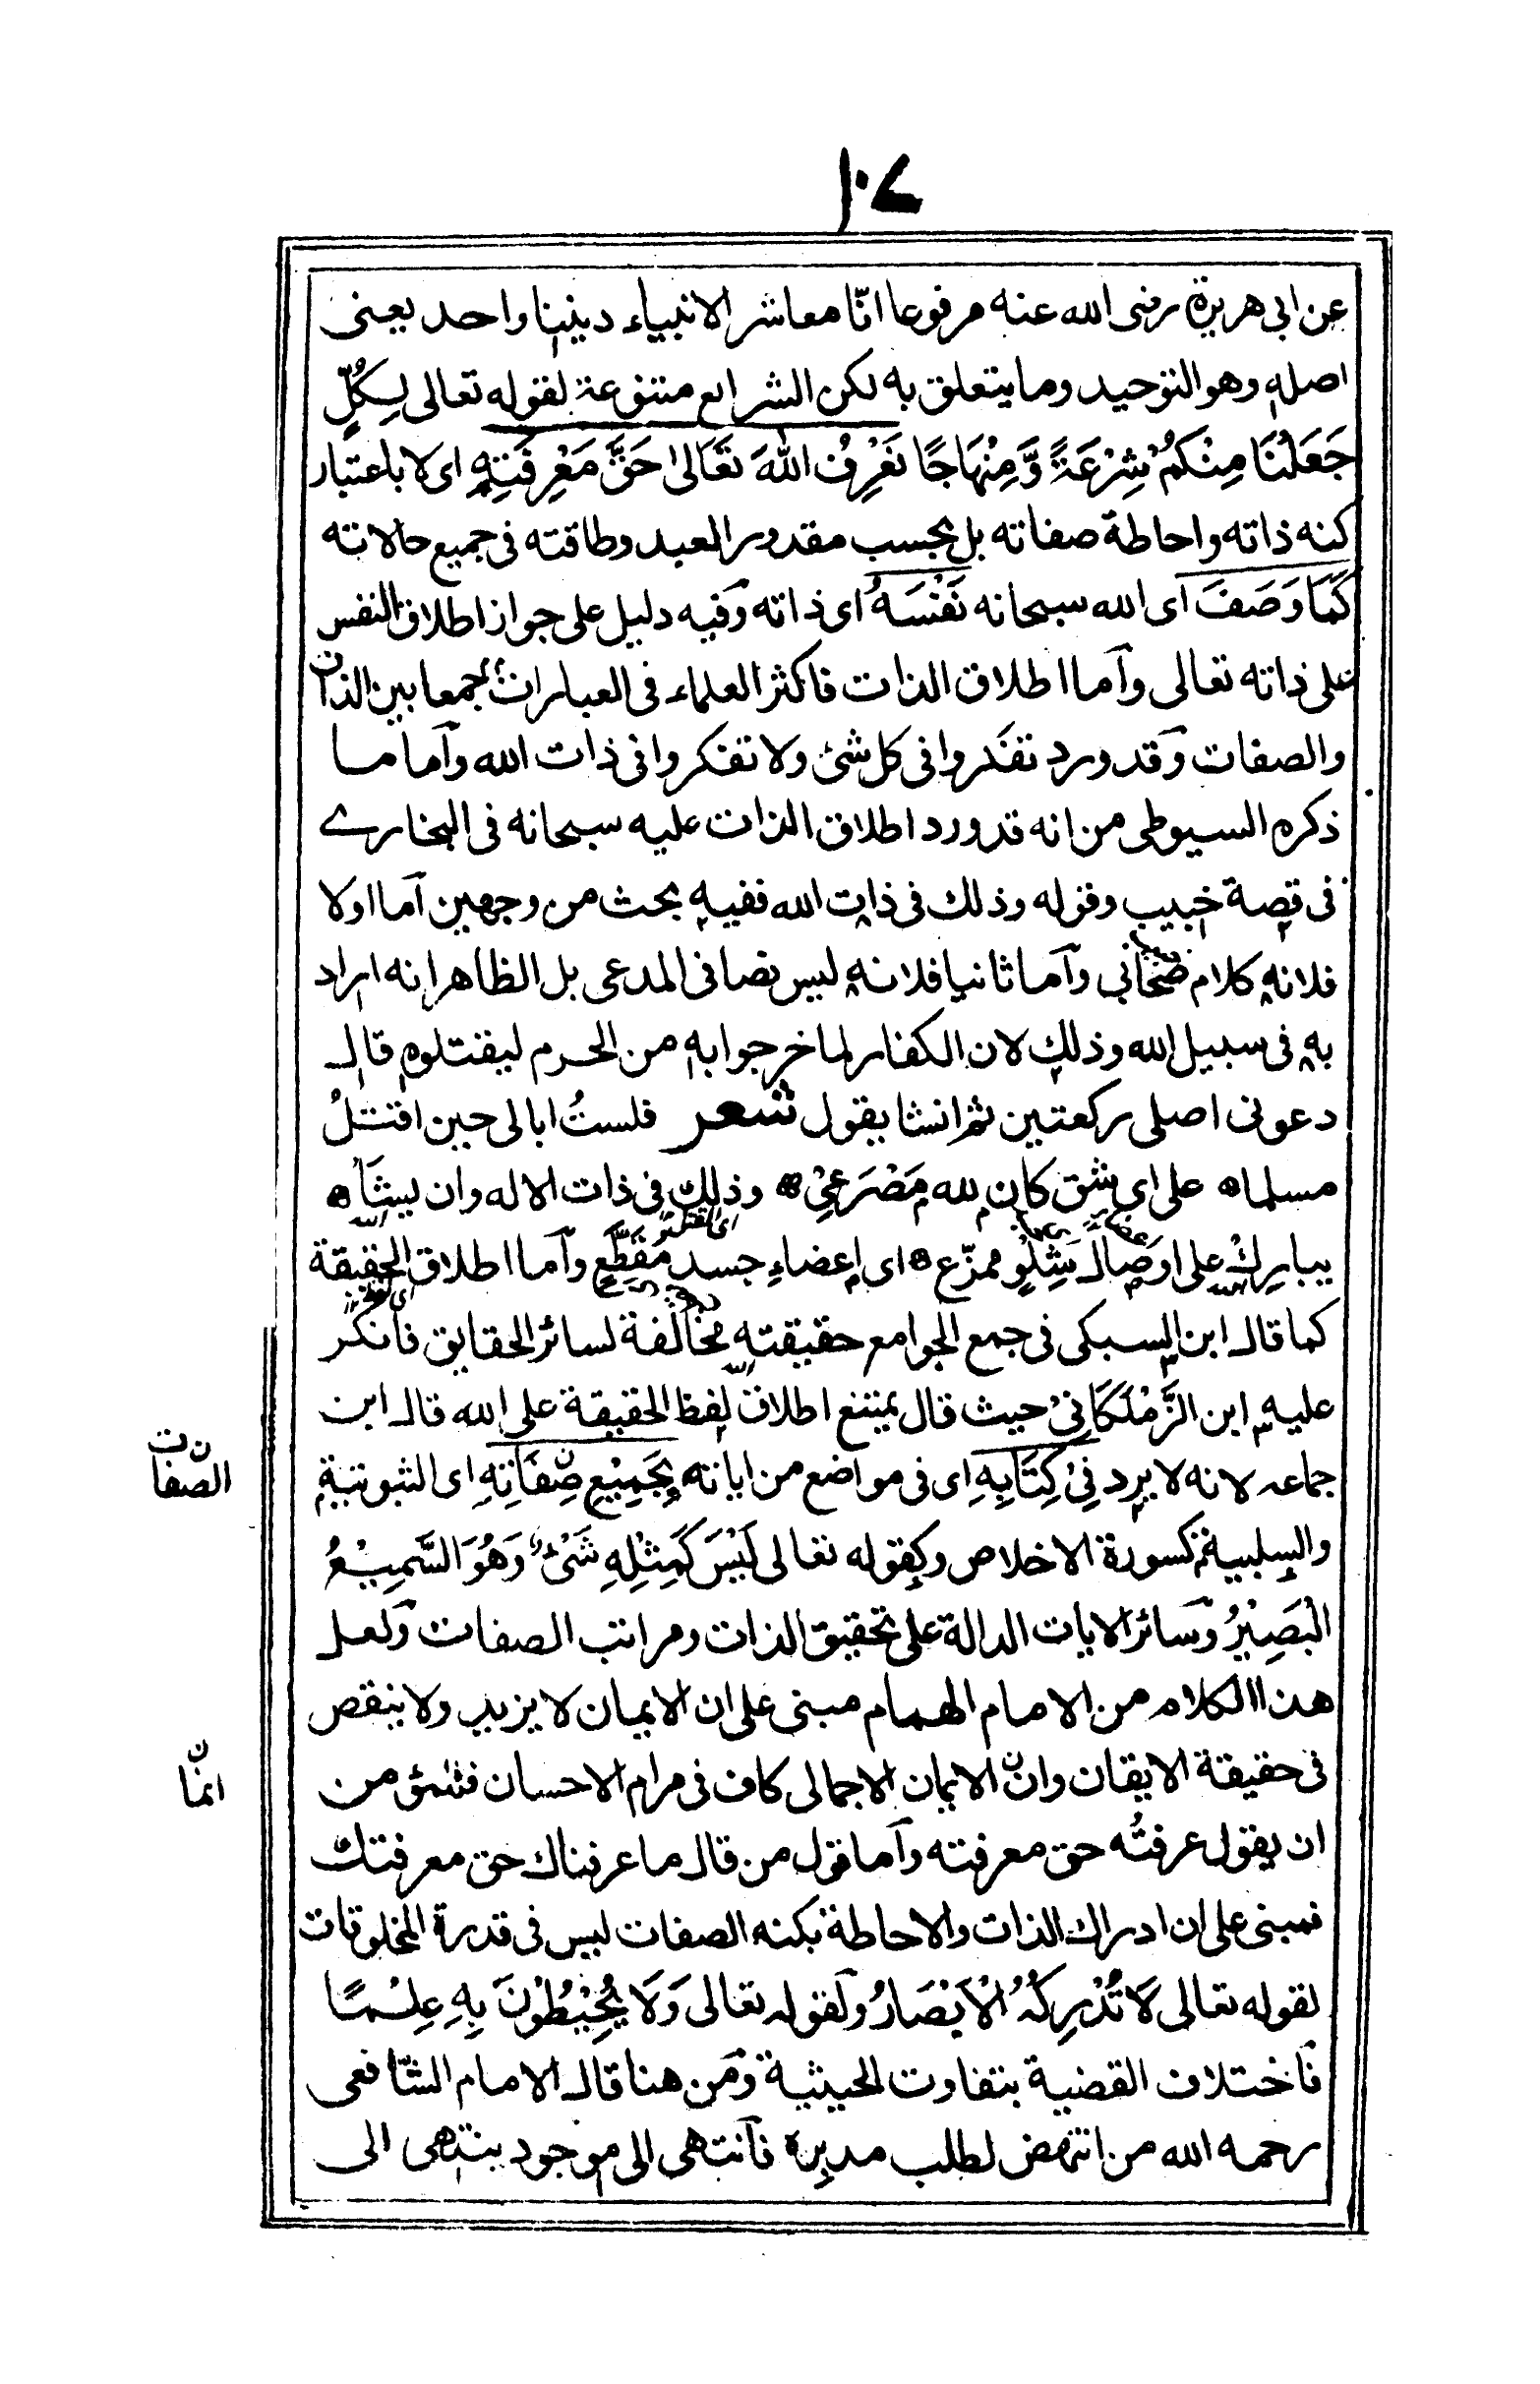 ١٠٧
عن ابى هريرة رضى الله عنه مرفوعا انّا معاشر الانبياء ديننا واحد يعنى
اصله وهو التوحيد وما يتعلق به لكن الشرايع متنوعة لقوله تعالى لِكُلٍّ
جَعَلْنَا مِنْكُمْ شِرْعَةً وَّمِنْهَاجًا نَعْرِفُ اللهَ تَعَالىٰ حَقَّ مَعْرِفَتِهٖ اى لا باعتبار
كنه ذاته واحاطة صفاته بل بحسب مقدور العبد وطاقته فى جميع حالاته
كَمَا وَصَفَ اى الله سبحانه نَفْسَهٗ اى ذاته وفيه دليل على جواز اطلاق النفس
على ذاته تعالى وآما اطلاق الذات فاكثر العلماء فى العبارات جمعا بين الذات
والصفات وقد ورد تفكروا فى كل شئ ولا تفكروا فى ذات الله وآما ما
ذكره السيوطى من انه قد ورد اطلاق الذات عليه سبحانه فى البخارى
فى قصة خبيب وقوله وذلك فى ذات الله ففيه بحث من وجهين آما اولا
فلانه كلام صحابى وآما ثانيا فلانه ليس نصا فى المدعى بل الظاهر انه اراد
به فى سبيل الله وذلك لان الكفار لما خرجوا به من الحرم ليقتلوه قال
دعونى اصلى ركعتين ثم انشا يقول شعر فلستُ ابالى حين اقتلُ
مسلما ه على اى شق كان لله مَصْرَعِىْ ه وذلك فى ذات الاله وان يشأ ه
يبارِكْ على اوصال شِلْوٍ ممزّع ه اى اعضاءِ جسدٍ مقطّعٍ وآما اطلاق الحقيقة
كما قال ابن السبكى فى جمع الجوامع حقيقته مخالفة لسائر الحقايق فانكر
عليه ابن الزَّمْلَكَانِىْ حيث قال يمتنع اطلاق لفظ الحقيقة على الله قال ابن
جماعه لانه لا يرد فِىْ كِتَابِهِ اى فى مواضع من اياته بِجَمِيْعِ صِفَاتِهِ اى الثبوتية
الصفات
والسلبية كسورة الاخلاص وكقوله تعالى لَيْسَ كَمِثْلِهِ شَىْءٌ وَهُوَ السَّمِيْعُ
الْبَصِيْرُ وسائر الايات الدالة على تحقيق الذات ومراتب الصفات ولعل
هذا الكلام من الامام الهمام مبنى على ان الايمان لا يزيد ولا ينقص
فى حقيقة الايقان وان الايمان الاجمالى كاف فى مرام الاحسان من
ان يقول عرفتُه حق معرفته وآما قول من قال ما عرفناك حق معرفتك
فمبنى على ان ادراك الذات والاحاطة بكنه الصفات ليس فى قدرة المخلوقات
لقوله تعالى لَا تُدْرِكُهُ الْاَبْصَارُ ولقوله تعالى وَلَا يُحِيْطُوْنَ بِهِ عِلْمًا
فاختلاف القضية بتفاوت الحيثية ومن هنا قال الامام الشافعى
رحمه الله من انتهض لطلب مدبره فانتهى الى موجود ينتهى الى